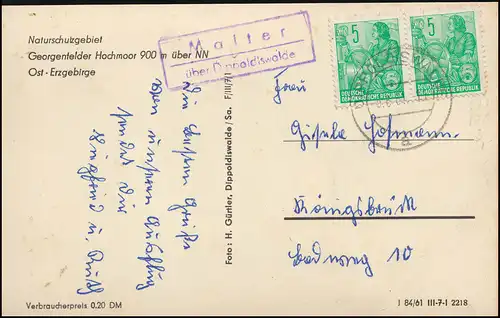 Naturschutzgebiet
Georgenfelder Hochmoor 900 m über NN
Ost-Erzgebirge
Malter
über Dippoldiswalde
5
DEUTSCHE
DEMOKRATISCHE REPUBLIK
5
DEUTSCHE
DEMOKRATISCHE REPUBLIK
a
Frau
Gisela Hofmann.
Königsbrück
Badweg 10
Foto: H. Gürtler, Dippoldiswalde/Sa. F/III/7/1
Grüße
von unseren Ausflug
sendet Dir
Siegfried u. Ruth
Verbraucherpreis 0.20 DM
I 84/61 III-7-1 2218